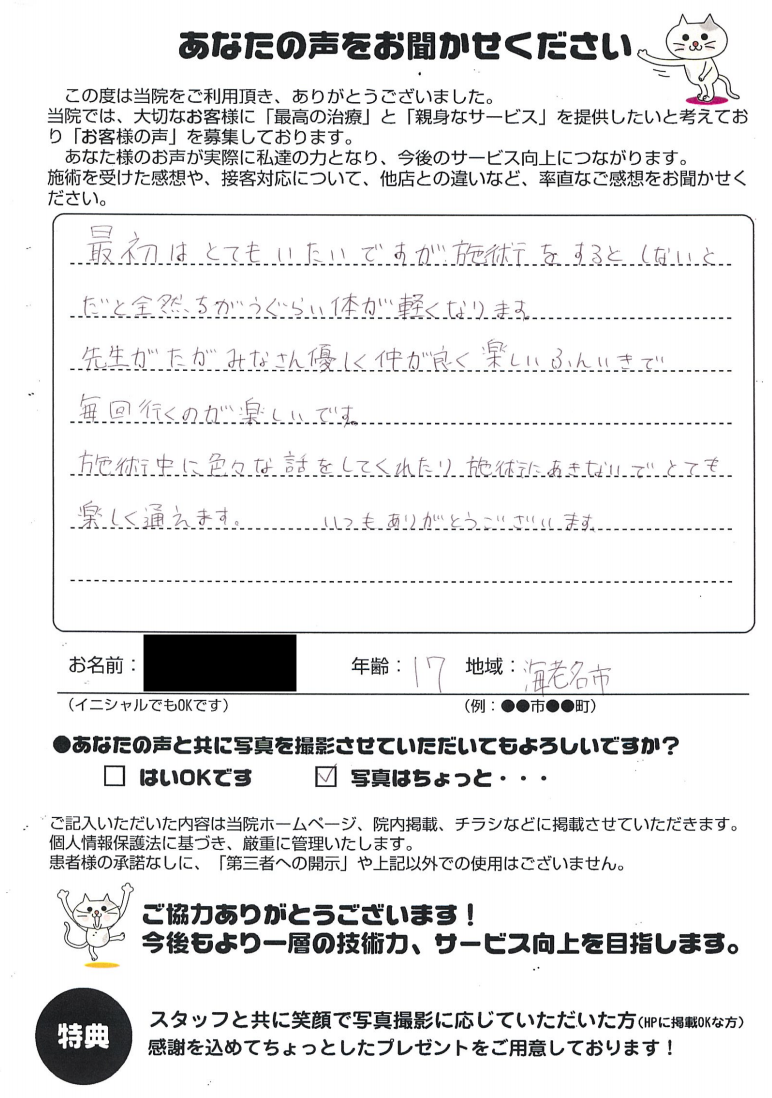 あなたの声をお聞かせください
この度は当院をご利用頂き、ありがとうございました。
当院では、大切なお客様に「最高の治療」と「親身なサービス」を提供したいと考えてお
り「お客様の声」を募集しております。
あなた様のお声が実際に私達の力となり、今後のサービス向上につながります。
施術を受けた感想や、接客対応について、他店との違いなど、率直なご感想をお聞かせく
ださい。
最初はとてもいたいですが施術をするとしないと
だと全然ちがうぐらい体が軽くなります
先生がたがみなさん優しく仲が良く楽しいふんいきで
毎回行くのが楽しいです。
施術中に色々な話をしてくれたり施術にあきないでとても
楽しく通えます。 いつもありがとうございます。
お名前： 年齢：17 地域：海老名市
（イニシャルでもOKです） （例：●●市●●町）
●あなたの声と共に写真を撮影させていただいてもよろしいですか？
□ はいOKです ☑ 写真はちょっと・・・
ご記入いただいた内容は当院ホームページ、院内掲載、チラシなどに掲載させていただきます。
個人情報保護法に基づき、厳重に管理いたします。
患者様の承諾なしに、「第三者への開示」や上記以外での使用はございません。
ご協力ありがとうございます！
今後もより一層の技術力、サービス向上を目指します。
特典
スタッフと共に笑顔で写真撮影に応じていただいた方（HPに掲載OKな方）
感謝を込めてちょっとしたプレゼントをご用意しております！